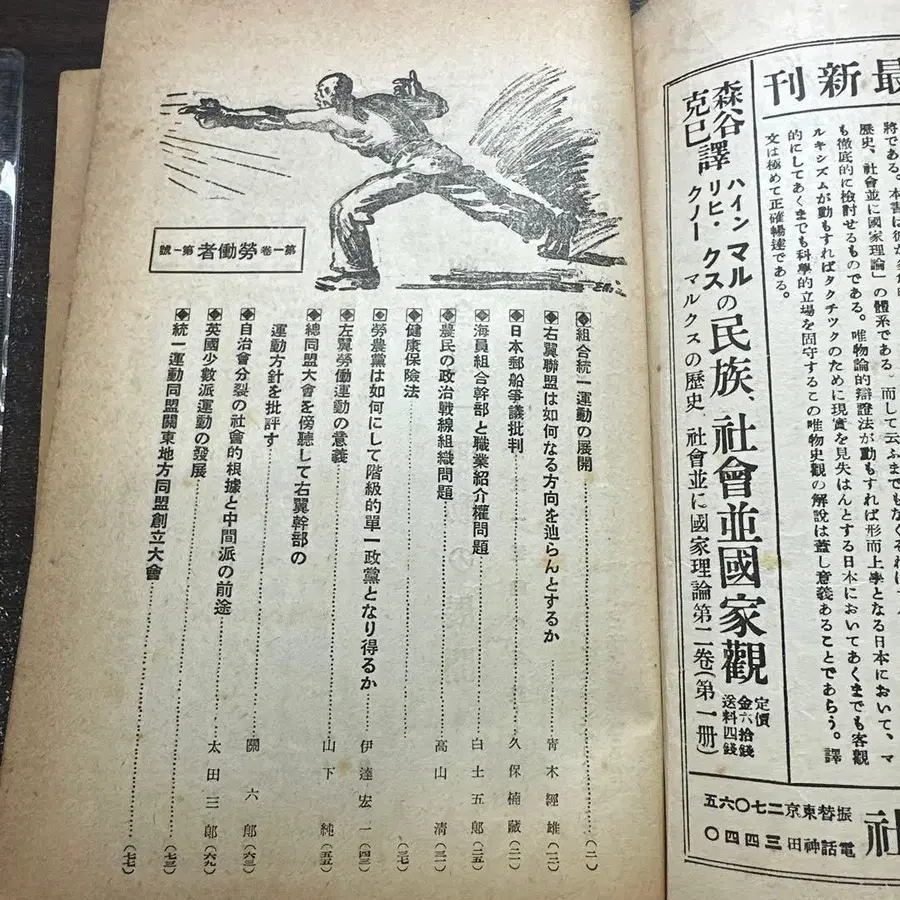 最新刊
將である。本書は彼が
歷史、社會並に國家理論」の體系である。而して云ふまでもなくそれは
も徹底的に檢討せるものである。唯物論的辯證法が動もすれば形而上學となる日本において、マ
ルキシズムが動もすればタクチツクのために現實を見失はんとする日本においてあくまでも客觀
的にしてあくまでも科學的立場を固守するこの唯物史觀の解說は蓋し意義あることであらう。譯
文は極めて正確暢達である。
マルクスの民族、社會並國家觀
定價金六拾錢
送料四錢
ハインリヒ・クノー
マルクスの歷史、社會並に國家理論第二卷(第一册)
森谷克巳譯
社
振替東京二七〇六五
電話神田三四四〇
第一卷 勞働者 第一號
◆組合統一運動の展開……(一)
◆右翼聯盟は如何なる方向を辿らんとするか 靑木經雄(一三)
◆日本郵船爭議批判……久保楠藏(二一)
◆海員組合幹部と職業紹介權問題……白土五郞(二五)
◆農民の政治戰線組織問題……高山淸(三一)
◆健康保險法……(三七)
◆勞農黨は如何にして階級的單一政黨となり得るか……伊達宏一(四三)
◆左翼勞働運動の意義……山下純(五五)
◆總同盟大會を傍聽して右翼幹部の
運動方針を批評す……關六郞(六三)
◆自治會分裂の社會的根據と中間派の前途……太田三郞(六九)
◆英國少數派運動の發展……(七三)
◆統一運動同盟關東地方同盟創立大會……(七七)